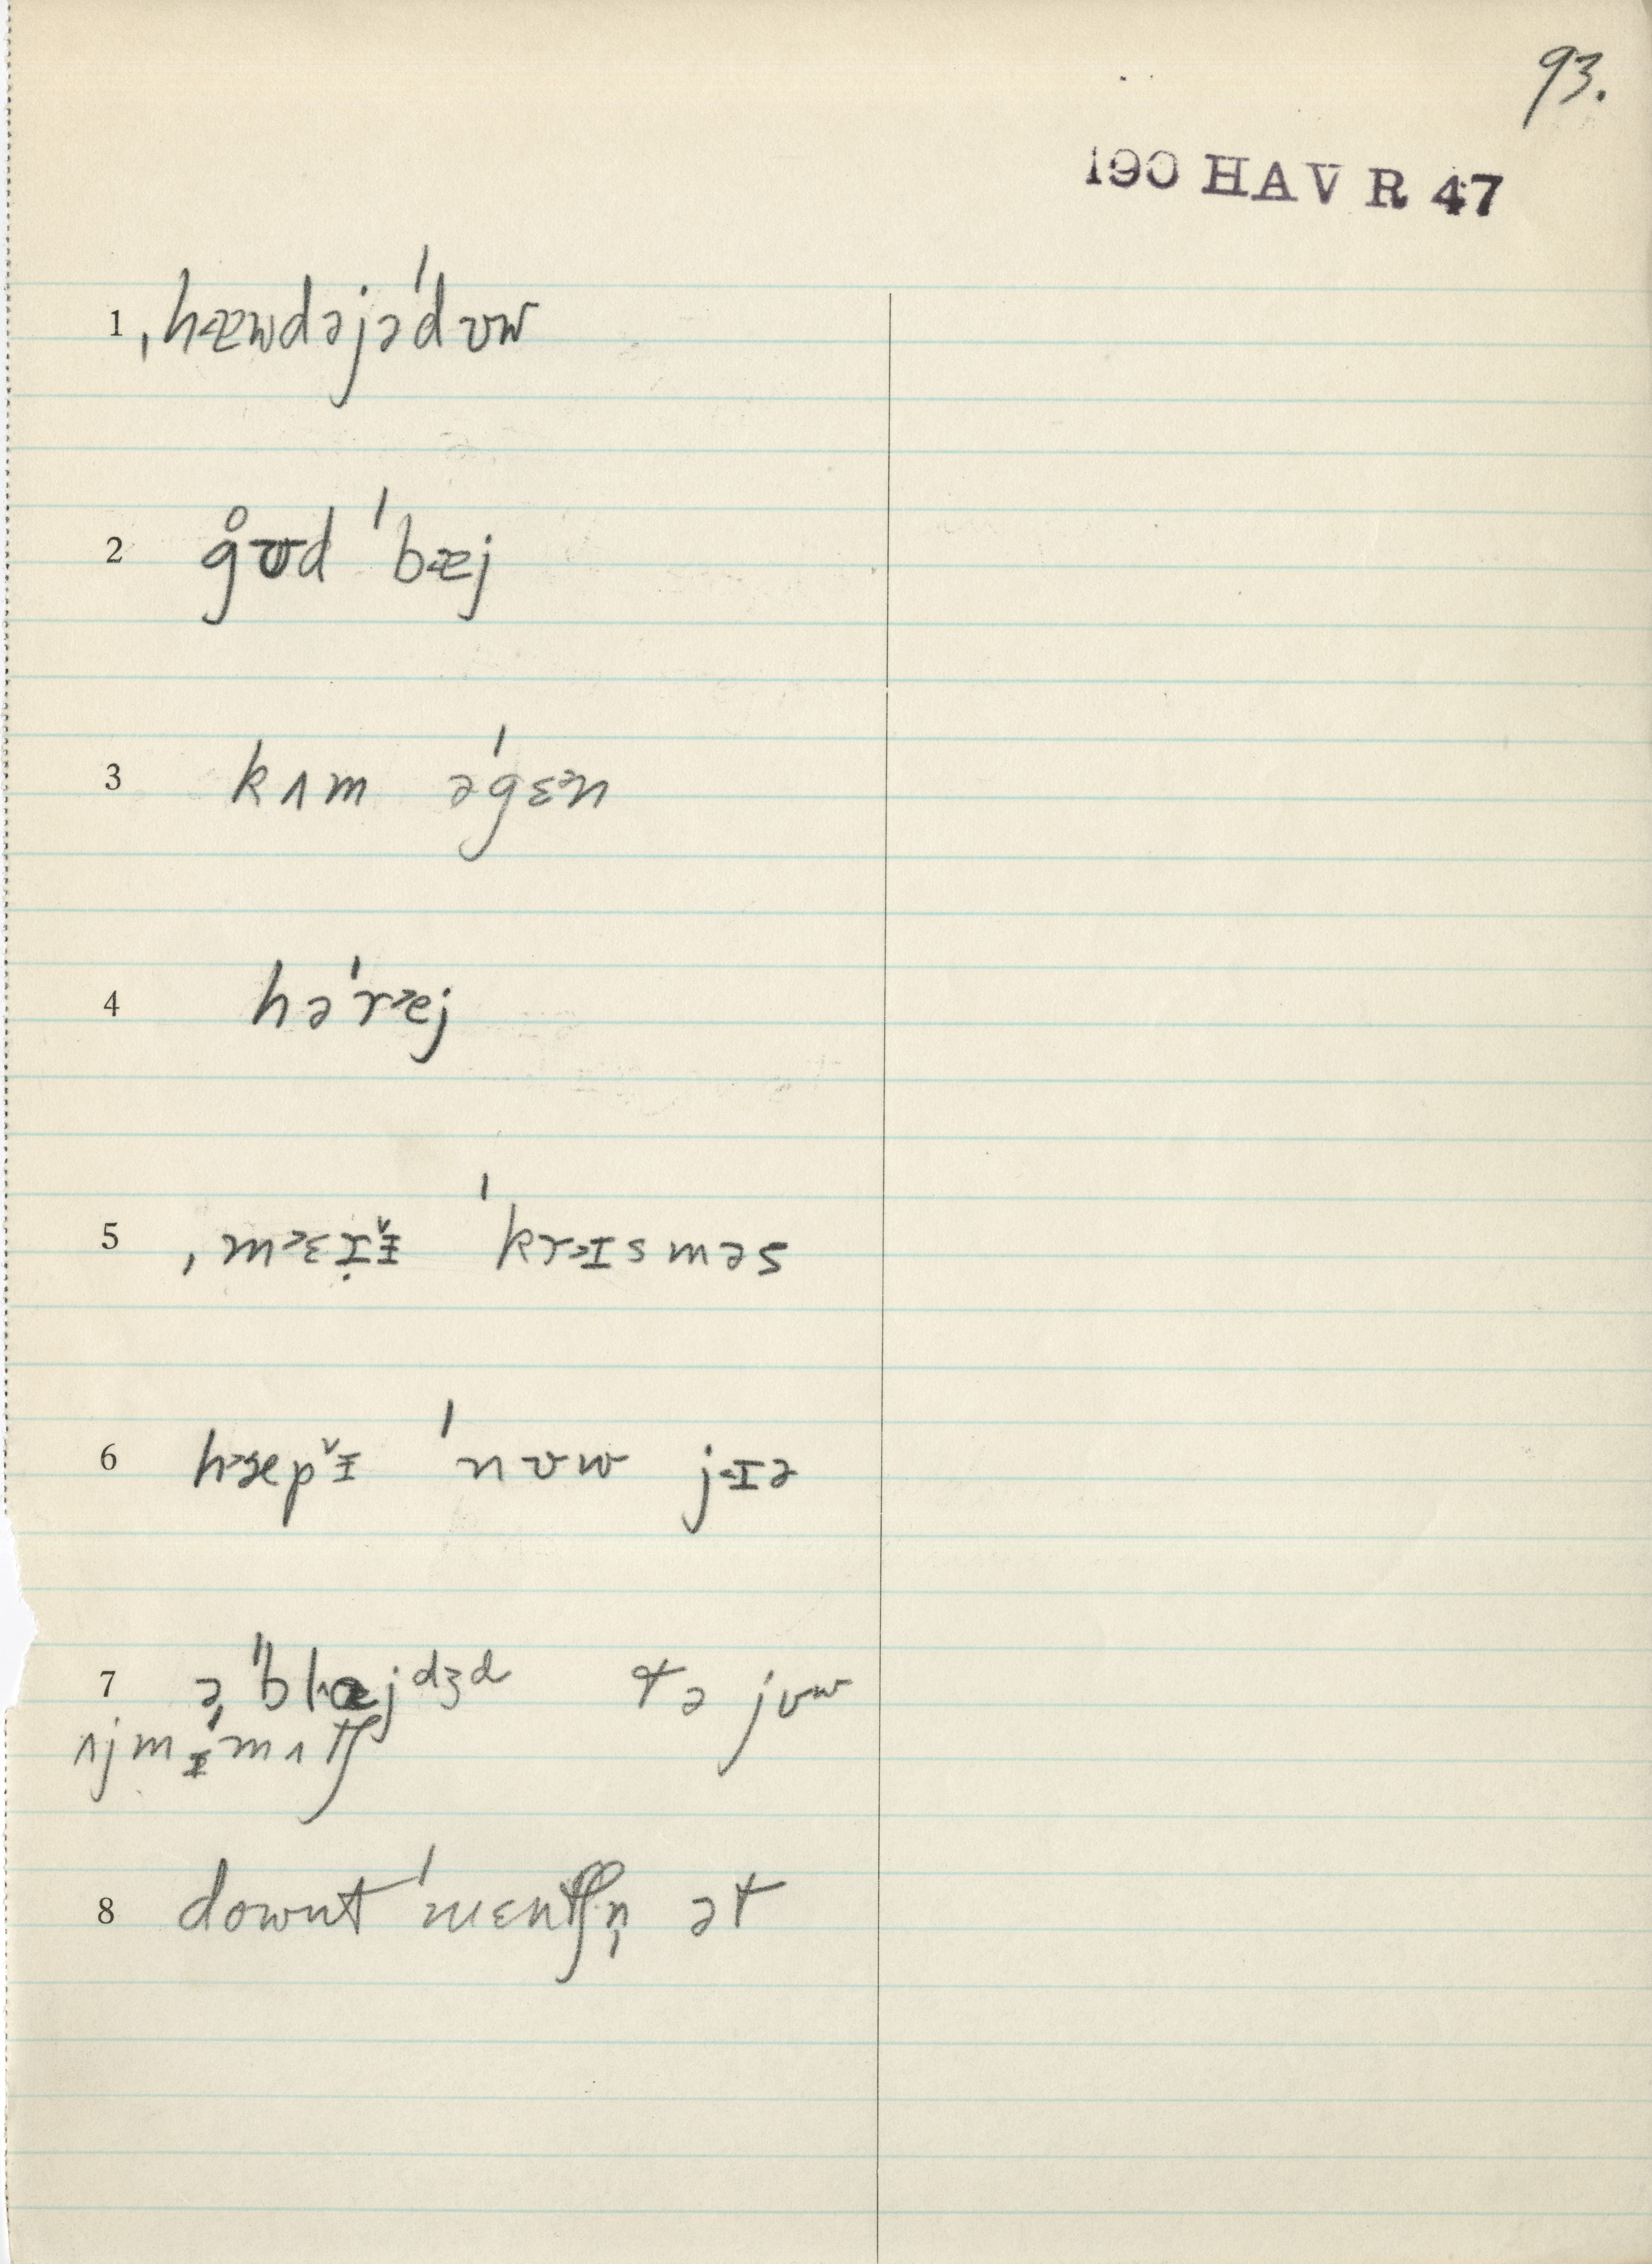 93.
190 HAV R 47
1 ˌhæwdəjəˈdʊw
2 g̊ʊd ˈbæj
3 kʌm əˈgɛ˃n
4 həˈr˃ej
5 ˌm˃ɛɪ̣ɪ̵̌ ˈkr˃ɪsməs
6 h˃æpɪ̵̌ ˈnʊw j˂ɪə
7 əˌˈˈblæjdʒd tə jʊw
ʌjmɪ̵ˈmʌtʃ
8 downt ˈmɛntʃn̩ ət